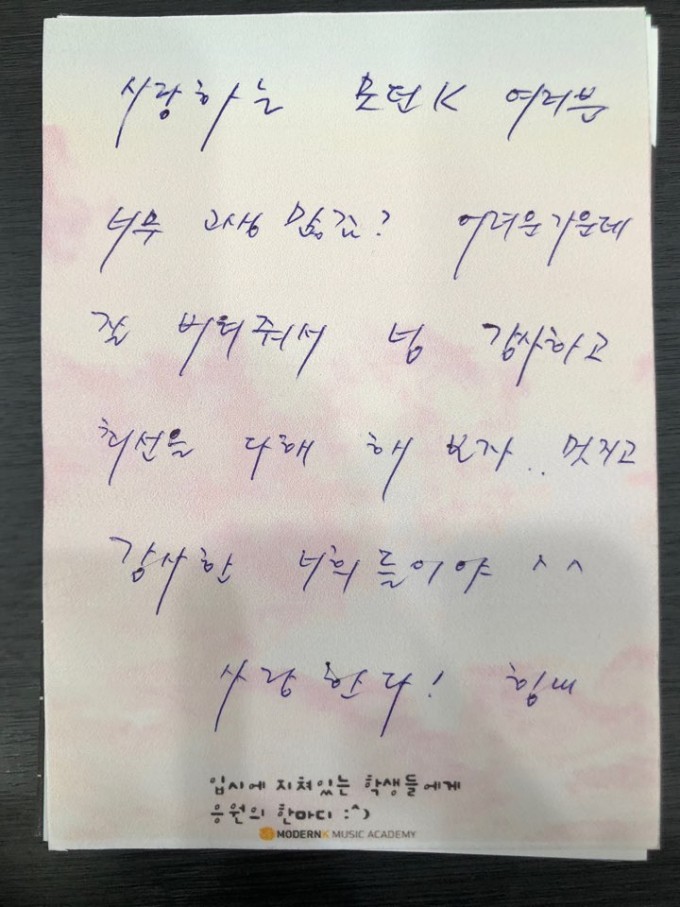 사랑하는 모던K 여러분
너무 고생 많지? 어려운가운데
잘 버텨줘서 넘 감사하고
최선을 다해 해 보자.. 멋지고
감사한 너희들이야 ^^
사랑한다! 힘내
입시에 지쳐있는 학생들에게
응원의 한마디 :^)
MODERNK MUSIC ACADEMY